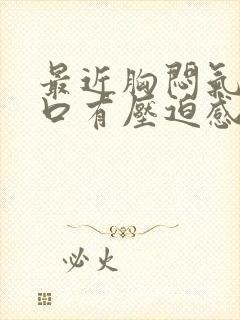 最近胸悶氣
口有壓迫感
必火